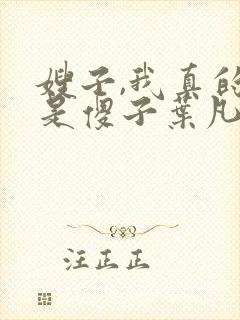 嫂子,我真的
是傻子叶凡
汪正正